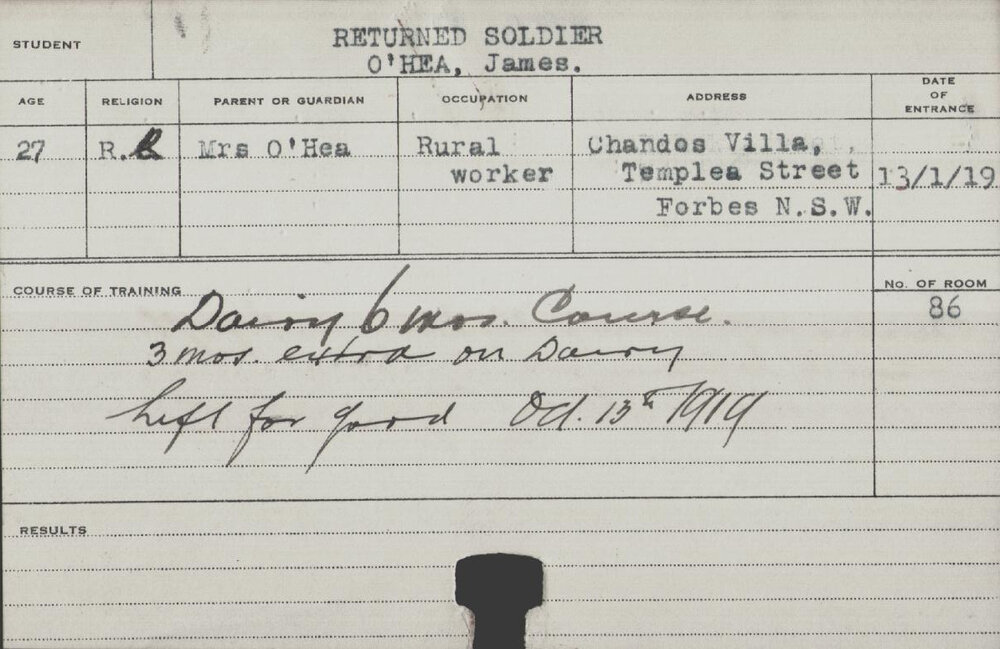 STUDENT
RETURNED SOLDIER
O'HEA, James.
AGE RELIGION PARENT OR GUARDIAN OCCUPATION ADDRESS DATE OF ENTRANCE
27 R.C Mrs O'Hea Rural worker Chandos Villa,
Templea Street 13/1/19
Forbes N.S.W.
COURSE OF TRAINING No. OF ROOM
Dairy 6 mos. Course. 86
3 mos. extra on Dairy
Left for good Oct. 13th 1919
RESULTS